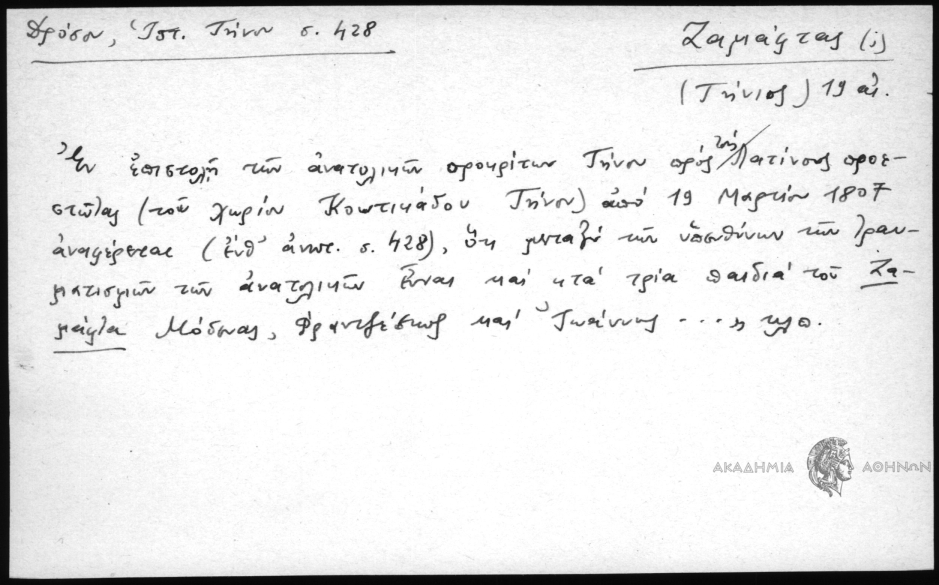 Δρόσου, Ἱστ. Τήνου σ. 428
Ζαμάρτας (ὁ)
(Τήνιος) 19 αἰ.
Ἐν ἐπιστολῇ τῶν ἀνατολικῶν προκρίτων Τήνου πρός τούς Λατίνους προε-
στῶτας (τοῦ χωρίου Κωτικάδου Τήνου) ἀπό 19 Μαρτίου 1807
ἀναφέρεται (ἔνθ' ἀνωτ. σ. 428), ὅτι μεταξύ τῶν ὑπευθύνων τῶν τραυ-
ματισμῶν τῶν ἀνατολικῶν εἶναι καί «τά τρία παιδιά τοῦ Ζα-
μάρτα Μόδενας, Φραντζέσκος καί Ἰωάννης ...» κλπ.
ΑΚΑΔΗΜΙΑ ΑΘΗΝΩΝ